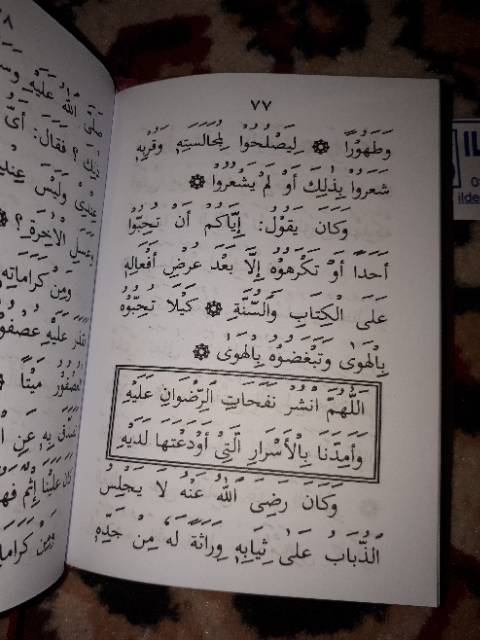 ٧٧
وَطَهُورًا ۞ لِيَصْلُحُوا لِمُجَالَسَتِهِ وَقُرْبِهِ
شَعَرُوا بِذٰلِكَ أَوْ لَمْ يَشْعُرُوا ۞
وَكَانَ يَقُولُ: إِيَّاكُمْ أَنْ تُحِبُّوا
أَحَدًا أَوْ تَكْرَهُوهُ إِلَّا بَعْدَ عَرْضِ أَفْعَالِهِ
عَلَى الْكِتَابِ وَالسُّنَّةِ ۞ كَيْلَا تُحِبُّوهُ
بِالْهَوَى وَتُبْغِضُوهُ بِالْهَوَى ۞
اَللّٰهُمَّ انْشُرْ نَفَحَاتِ الرِّضْوَانِ عَلَيْهِ
وَأَمِدَّنَا بِالْأَسْرَارِ الَّتِي أَوْدَعْتَهَا لَدَيْهِ
وَكَانَ رَضِيَ اللّٰهُ عَنْهُ لَا يَجْلِسُ
الذُّبَابُ عَلَى ثِيَابِهِ وِرَاثَةً لَهُ مِنْ جَدِّهِ
صَلَّى اللّٰهُ عَلَيْهِ
؟ فَقَالَ: أَيُّ
وَلَيْسَ
الْآخِرَةِ ؟ ۞
وَمِنْ كَرَامَاتِهِ
عَلَيْهِ عُصْفُو
مَيْتًا
بِهِ عَنِ
كَانَ عَلَيْنَا إِثْمٌ فَهُ
وَمِنْ كَرَامَا
IL